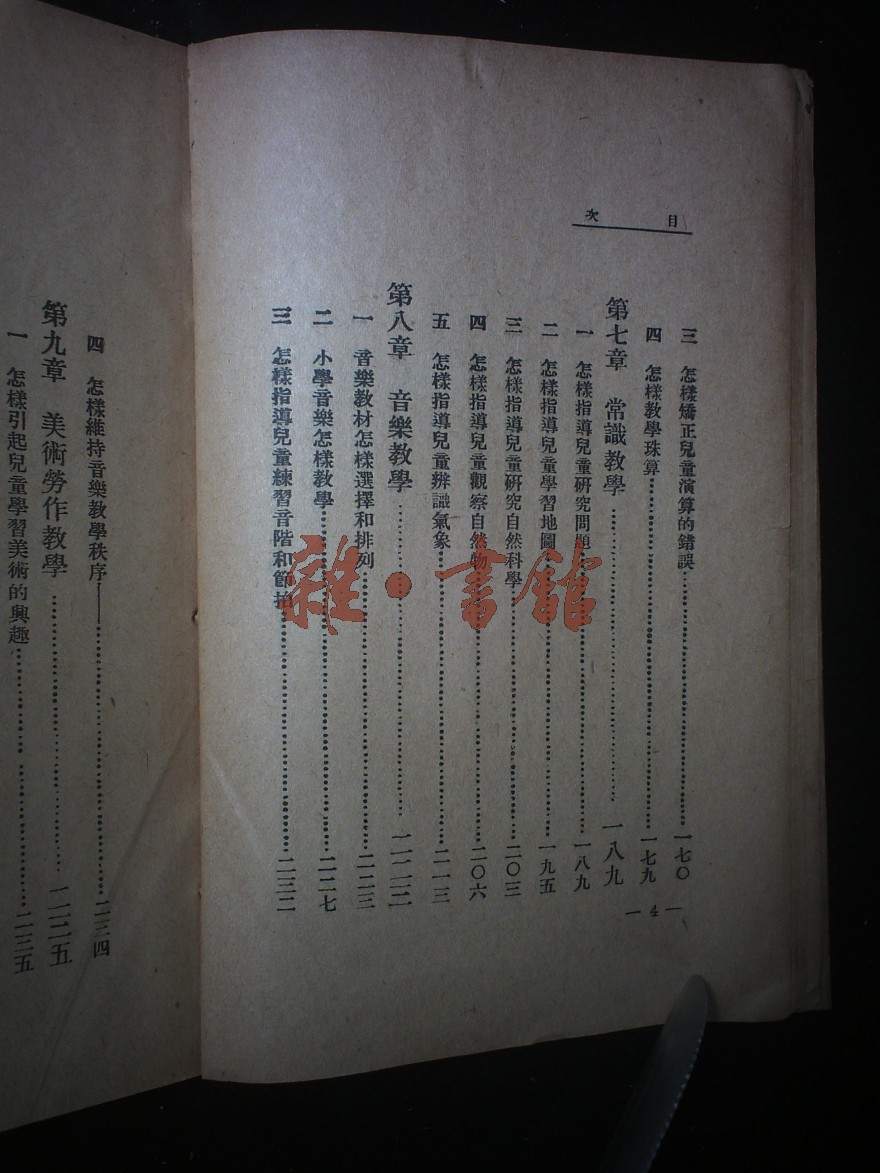 目次
三 怎樣矯正兒童演算的錯誤……一七〇
四 怎樣教學珠算……一七九
第七章 常識教學……一八九
一 怎樣指導兒童研究問題……一八九
二 怎樣指導兒童學習地圖……一九五
三 怎樣指導兒童研究自然科學……二〇三
四 怎樣指導兒童觀察自然物……二〇六
五 怎樣指導兒童辨識氣象……二一三
第八章 音樂教學……二二三
一 音樂教材怎樣選擇和排列……二二三
二 小學音樂怎樣教學……二二七
三 怎樣指導兒童練習音階和節拍……二三二
—4—
四 怎樣維持音樂教學秩序……二三四
第九章 美術勞作教學……二三五
一 怎樣引起兒童學習美術的興趣……二三五
雜·書館